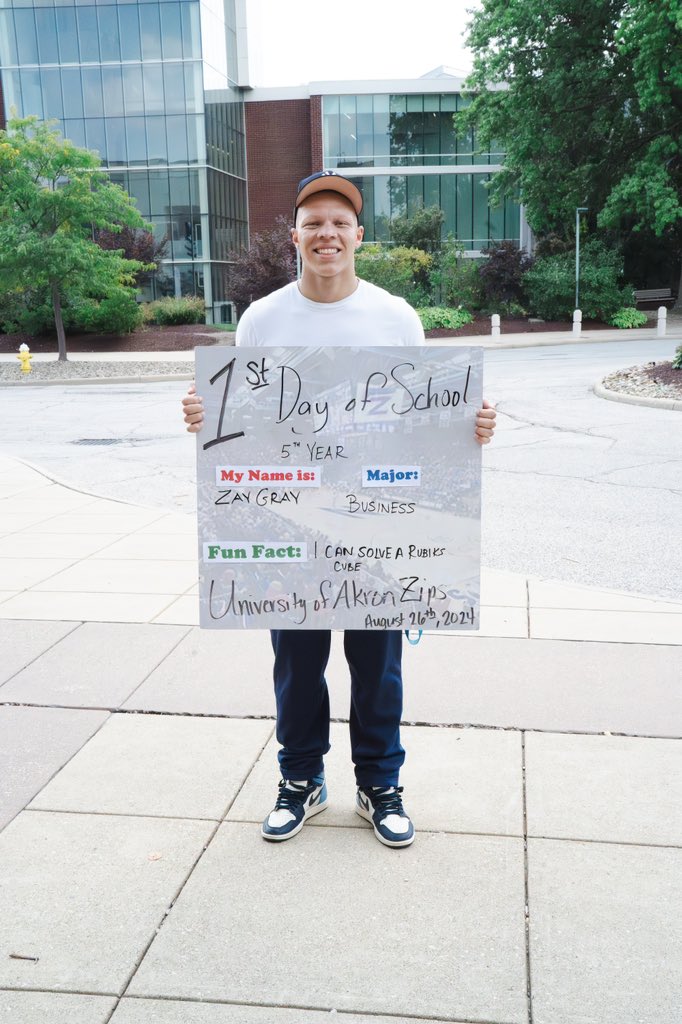 1st Day of School
5TH YEAR
My Name is: Major:
ZAY GRAY BUSINESS
Fun Fact: I CAN SOLVE A RUBIKS
CUBE
University of Akron Zips
August 26th, 2024